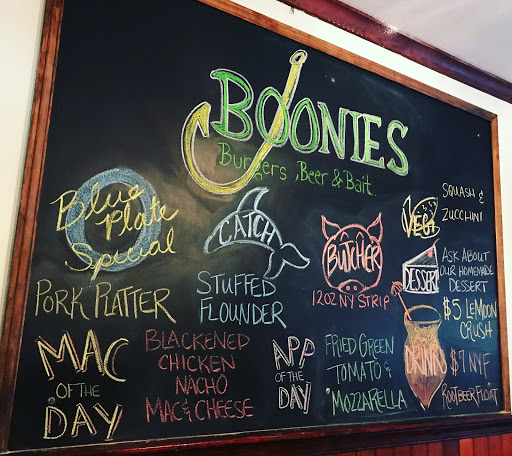 BOONIES
Burgers, Beer & Bait.
Blue Plate Special
PORK PLATTER
CATCH
STUFFED
FLOUNDER
BUTCHER
12OZ NY STRIP
VEG
SQUASH &
ZUCCHINI
DESSERT
ASK ABOUT
OUR HOMEMADE
DESSERT
MAC
OF THE
DAY
BLACKENED
CHICKEN
NACHO
MAC & CHEESE
APP
OF THE
DAY
FRIED GREEN
TOMATO &
MOZZARELLA
DRINK
$5 LEMOON
CRUSH
$7 NYF
ROOTBEER FLOAT